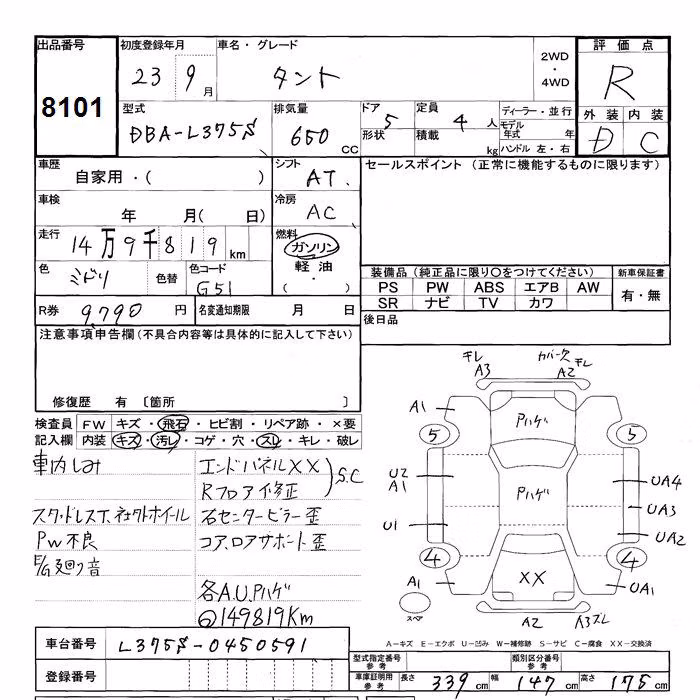 出品番号
8101
初度登録年月
23 9 月
車名・グレード
タント
2WD
・
4WD
評価点
R
外装 内装
D C
型式
DBA-L375S
排気量
650 CC
ドア
5
形状
定員
4 人
積載
kg
ディーラー・並行
モデル
年式 年
ハンドル 左・右
車歴
自家用・( )
シフト
AT
セールスポイント (正常に機能するものに限ります)
車検
年 月( 日)
冷房
AC
走行
14万9千819km
燃料
ガソリン
軽油
・( )
色
ミドリ
色替
色コード
G51
装備品(純正品に限り〇をつけてください)
新車保証書
PS PW ABS エアB AW
SR ナビ TV カワ
有・無
R券 9790 円
名変通知期限 月 日
後日品
注意事項申告欄(不具合内容等は具体的に記入して下さい)
修復歴 有 〔箇所 〕
検査員 FW キズ・飛石・ヒビ割・リペア跡・×要
記入欄 内装 キズ・汚レ・コゲ・穴・スレ・キレ・破レ
車内しみ
スタッドレスT、社外ホイール
PW不良
E/G廻り音
エンドパネルXX
Rフロアイ修正
S.C
右センターピラー歪
コア、ロアサポート歪
各A.U.Pハゲ
149819Km
キレ
A3
カバー欠
キレ
A2
A1
Pハゲ
5
5
U2
A1
Pハゲ
UA4
UA3
U1
UA2
4
4
A1
XX
UA1
スペア
A2
A3ズレ
A-キズ E-エクボ U-凹み W-補修跡 S-サビ C-腐食 XX-交換済
車台番号 L375S-0450591
登録番号
型式指定番号
参考
類別区分番号
参考
車庫証明用
参考
長さ 339 cm 幅 147 cm 高さ 175 cm